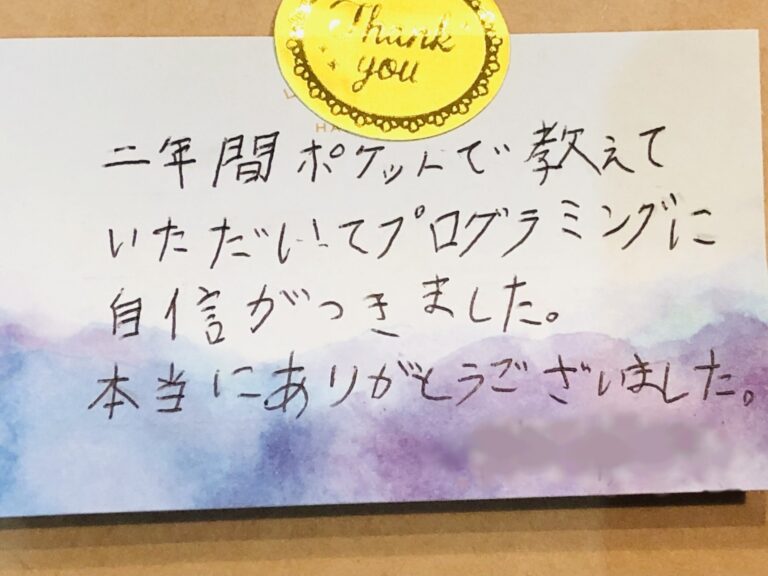 Thank
you
HA
二年間ポケットで教えて
いただいてプログラミングに
自信がつきました。
本当にありがとうございました。